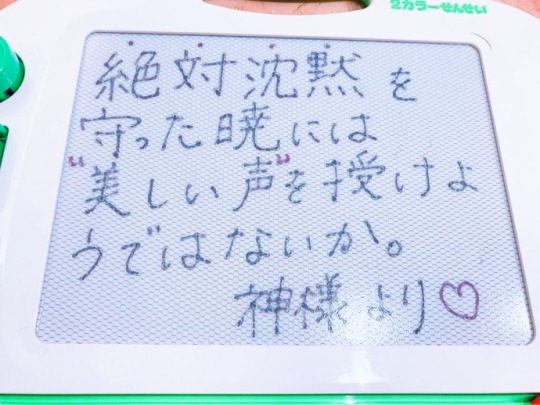 2カラーせんせい
絶対沈黙を
守った暁には
"美しい声"を授けよ
うではないか。
神様より♡